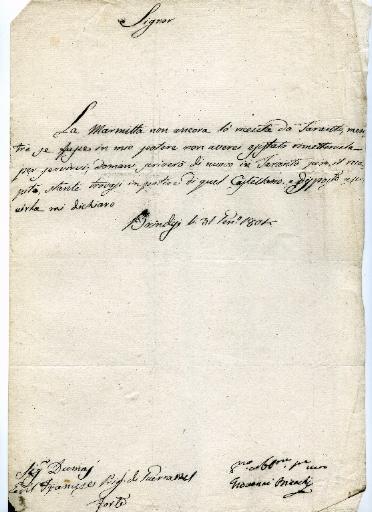 Signor
La Marmitta non ancora lò riceuta da Taranto, men
tre se fusse in mio potere non avere esitato rimettercela
per servirvi, domani scriverò di nuovo in Taranto pera, il reca
pito, stante trovasi in potere di quel Castellano, e disposto a ser
virla mi dichiaro
Brindisi li 31 Gen.º 1801
Sig.r Dumas
Gen.l Francese Prig. di Guerra nel
forte